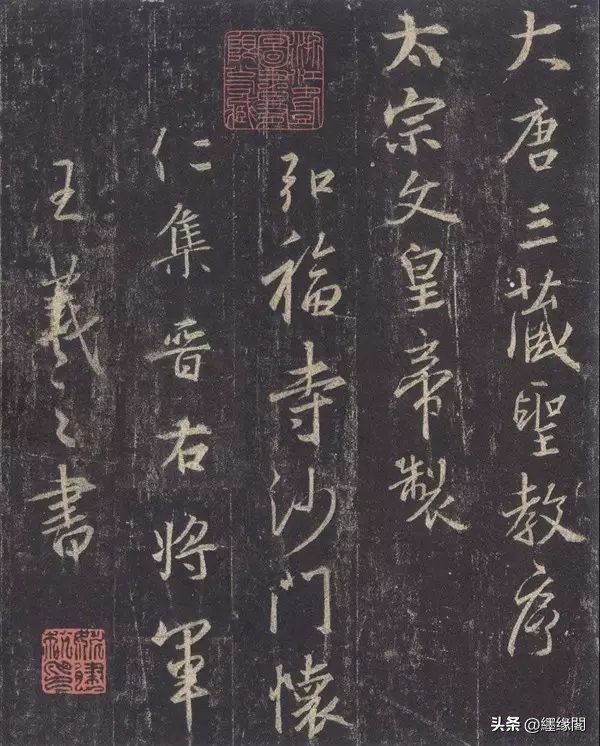 大唐三藏聖教序
太宗文皇帝製
弘福寺沙門懷
仁集晋右将軍
王羲之書
头条 @纆缘閣